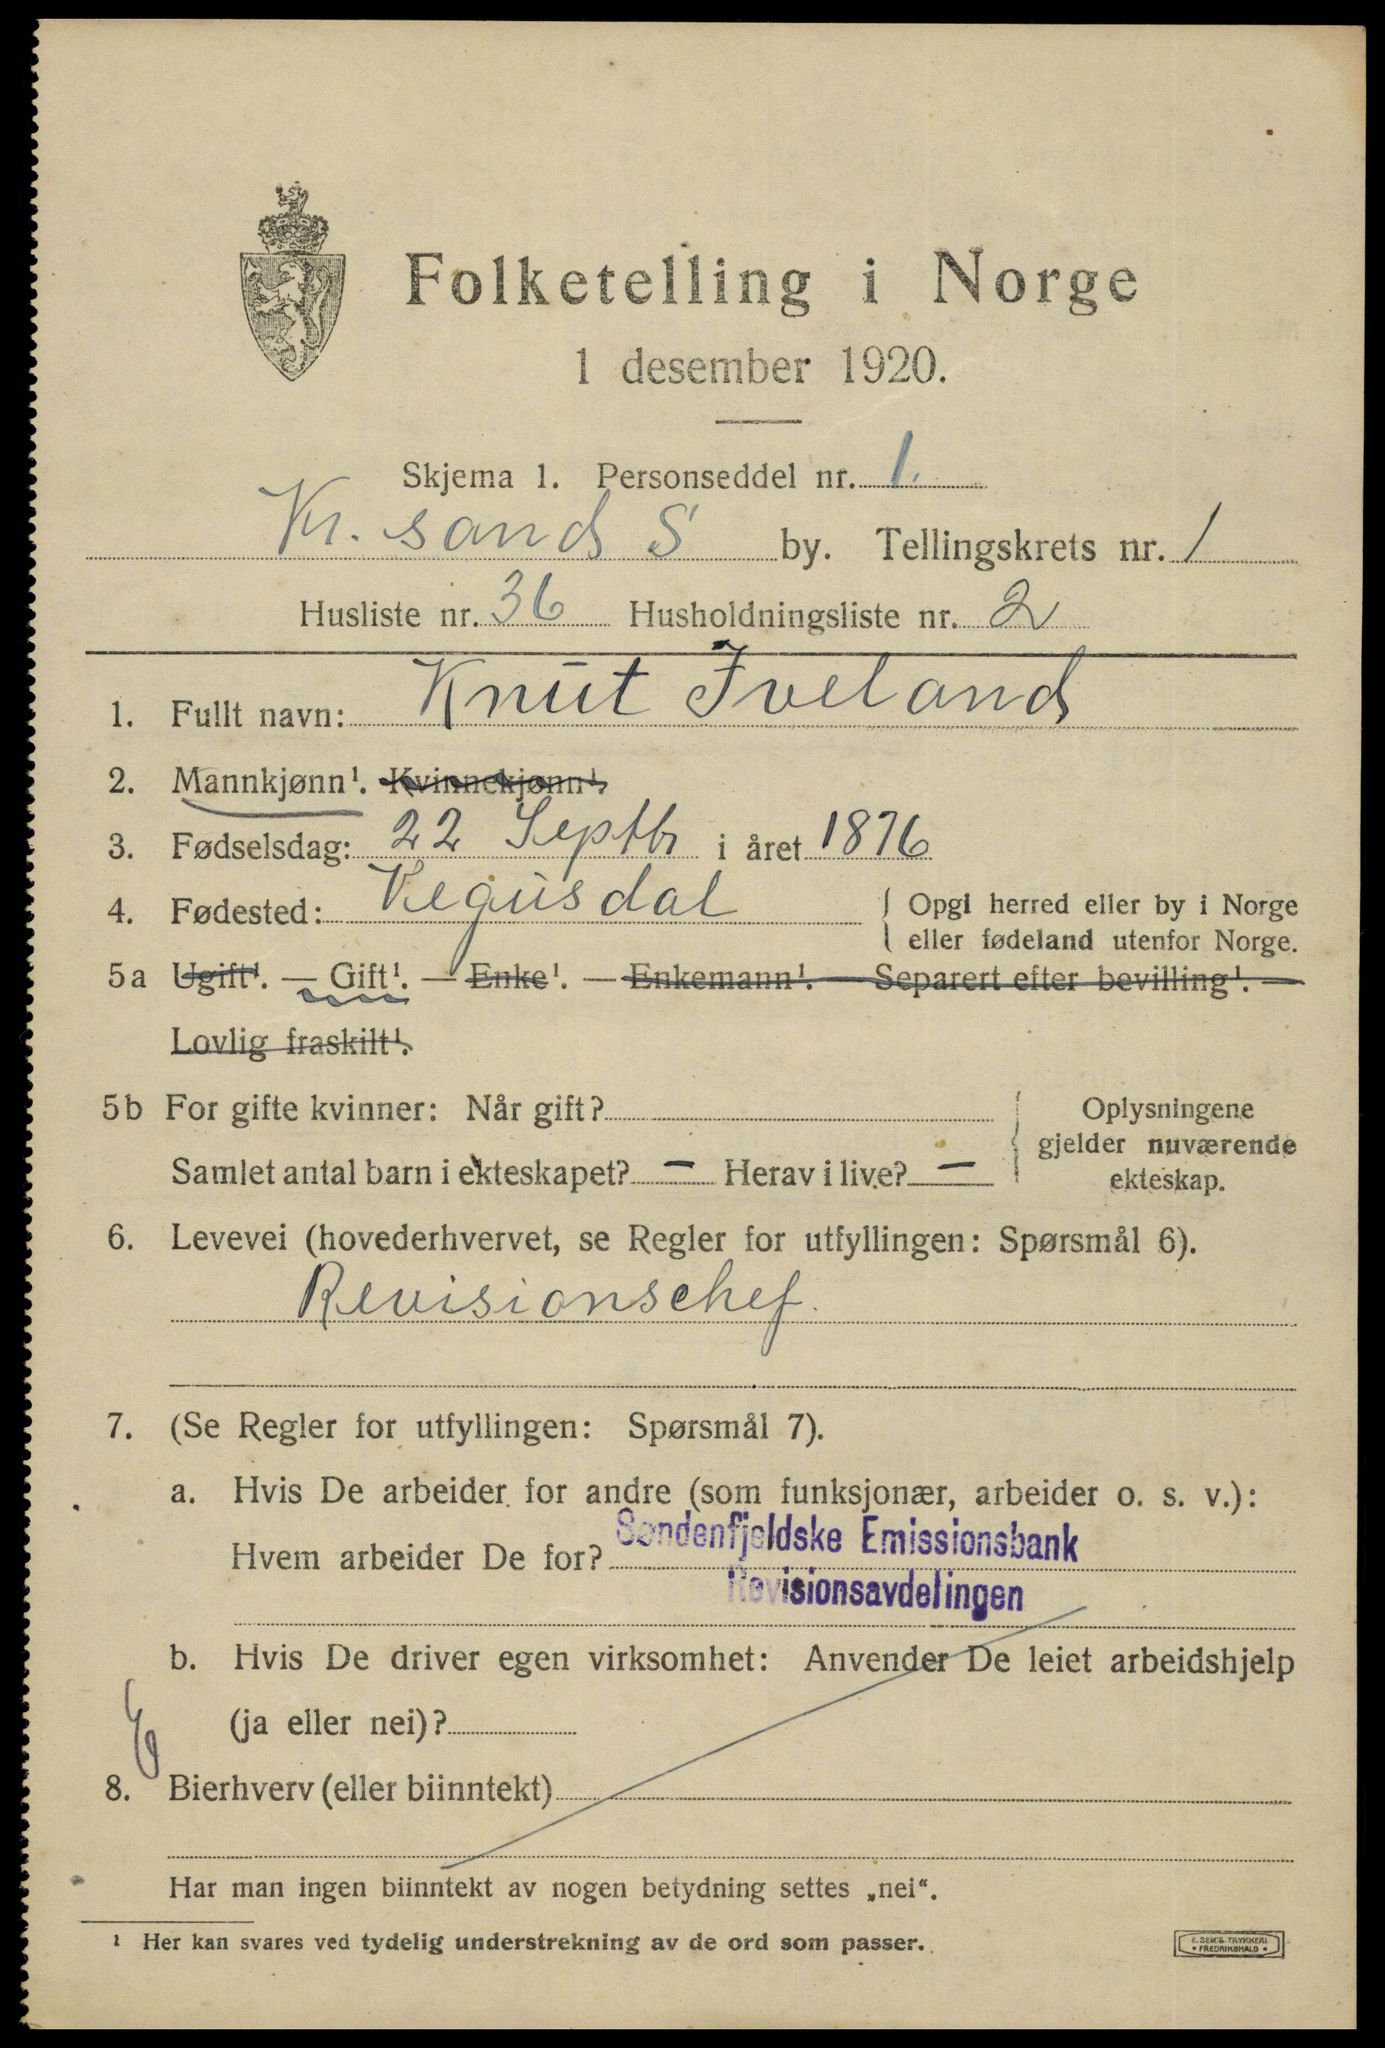 Folketelling i Norge
1 desember 1920.
Skjema 1. Personseddel nr. 1.
Kr. sand S by. Tellingskrets nr. 1
Husliste nr. 36 Husholdningsliste nr. 2
1. Fullt navn: Knut Iveland
2. Mannkjønn¹. Kvinnekjønn¹.
3. Fødselsdag: 22 Septbr i året 1876
4. Fødested: Vegusdal { Opgi herred eller by i Norge
eller fødeland utenfor Norge.
5a Ugift¹. — Gift¹. — Enke¹. — Enkemann¹. — Separert efter bevilling¹. —
Lovlig fraskilt¹.
5b For gifte kvinner: Når gift? { Oplysningene
gjelder nuværende
Samlet antal barn i ekteskapet? — Herav i live? — ekteskap.
6. Levevei (hovederhvervet, se Regler for utfyllingen: Spørsmål 6).
Revisionschef.
7. (Se Regler for utfyllingen: Spørsmål 7).
a. Hvis De arbeider for andre (som funksjonær, arbeider o. s. v.):
Hvem arbeider De for? Søndenfjeldske Emissionsbank
Revisionsavdelingen
b. Hvis De driver egen virksomhet: Anvender De leiet arbeidshjelp
(ja eller nei)?
8. Bierhverv (eller biinntekt)
Har man ingen biinntekt av nogen betydning settes „nei“.
¹ Her kan svares ved tydelig understrekning av de ord som passer.
E. SEM'S TRYKKERI
• FREDRIKSHALD •